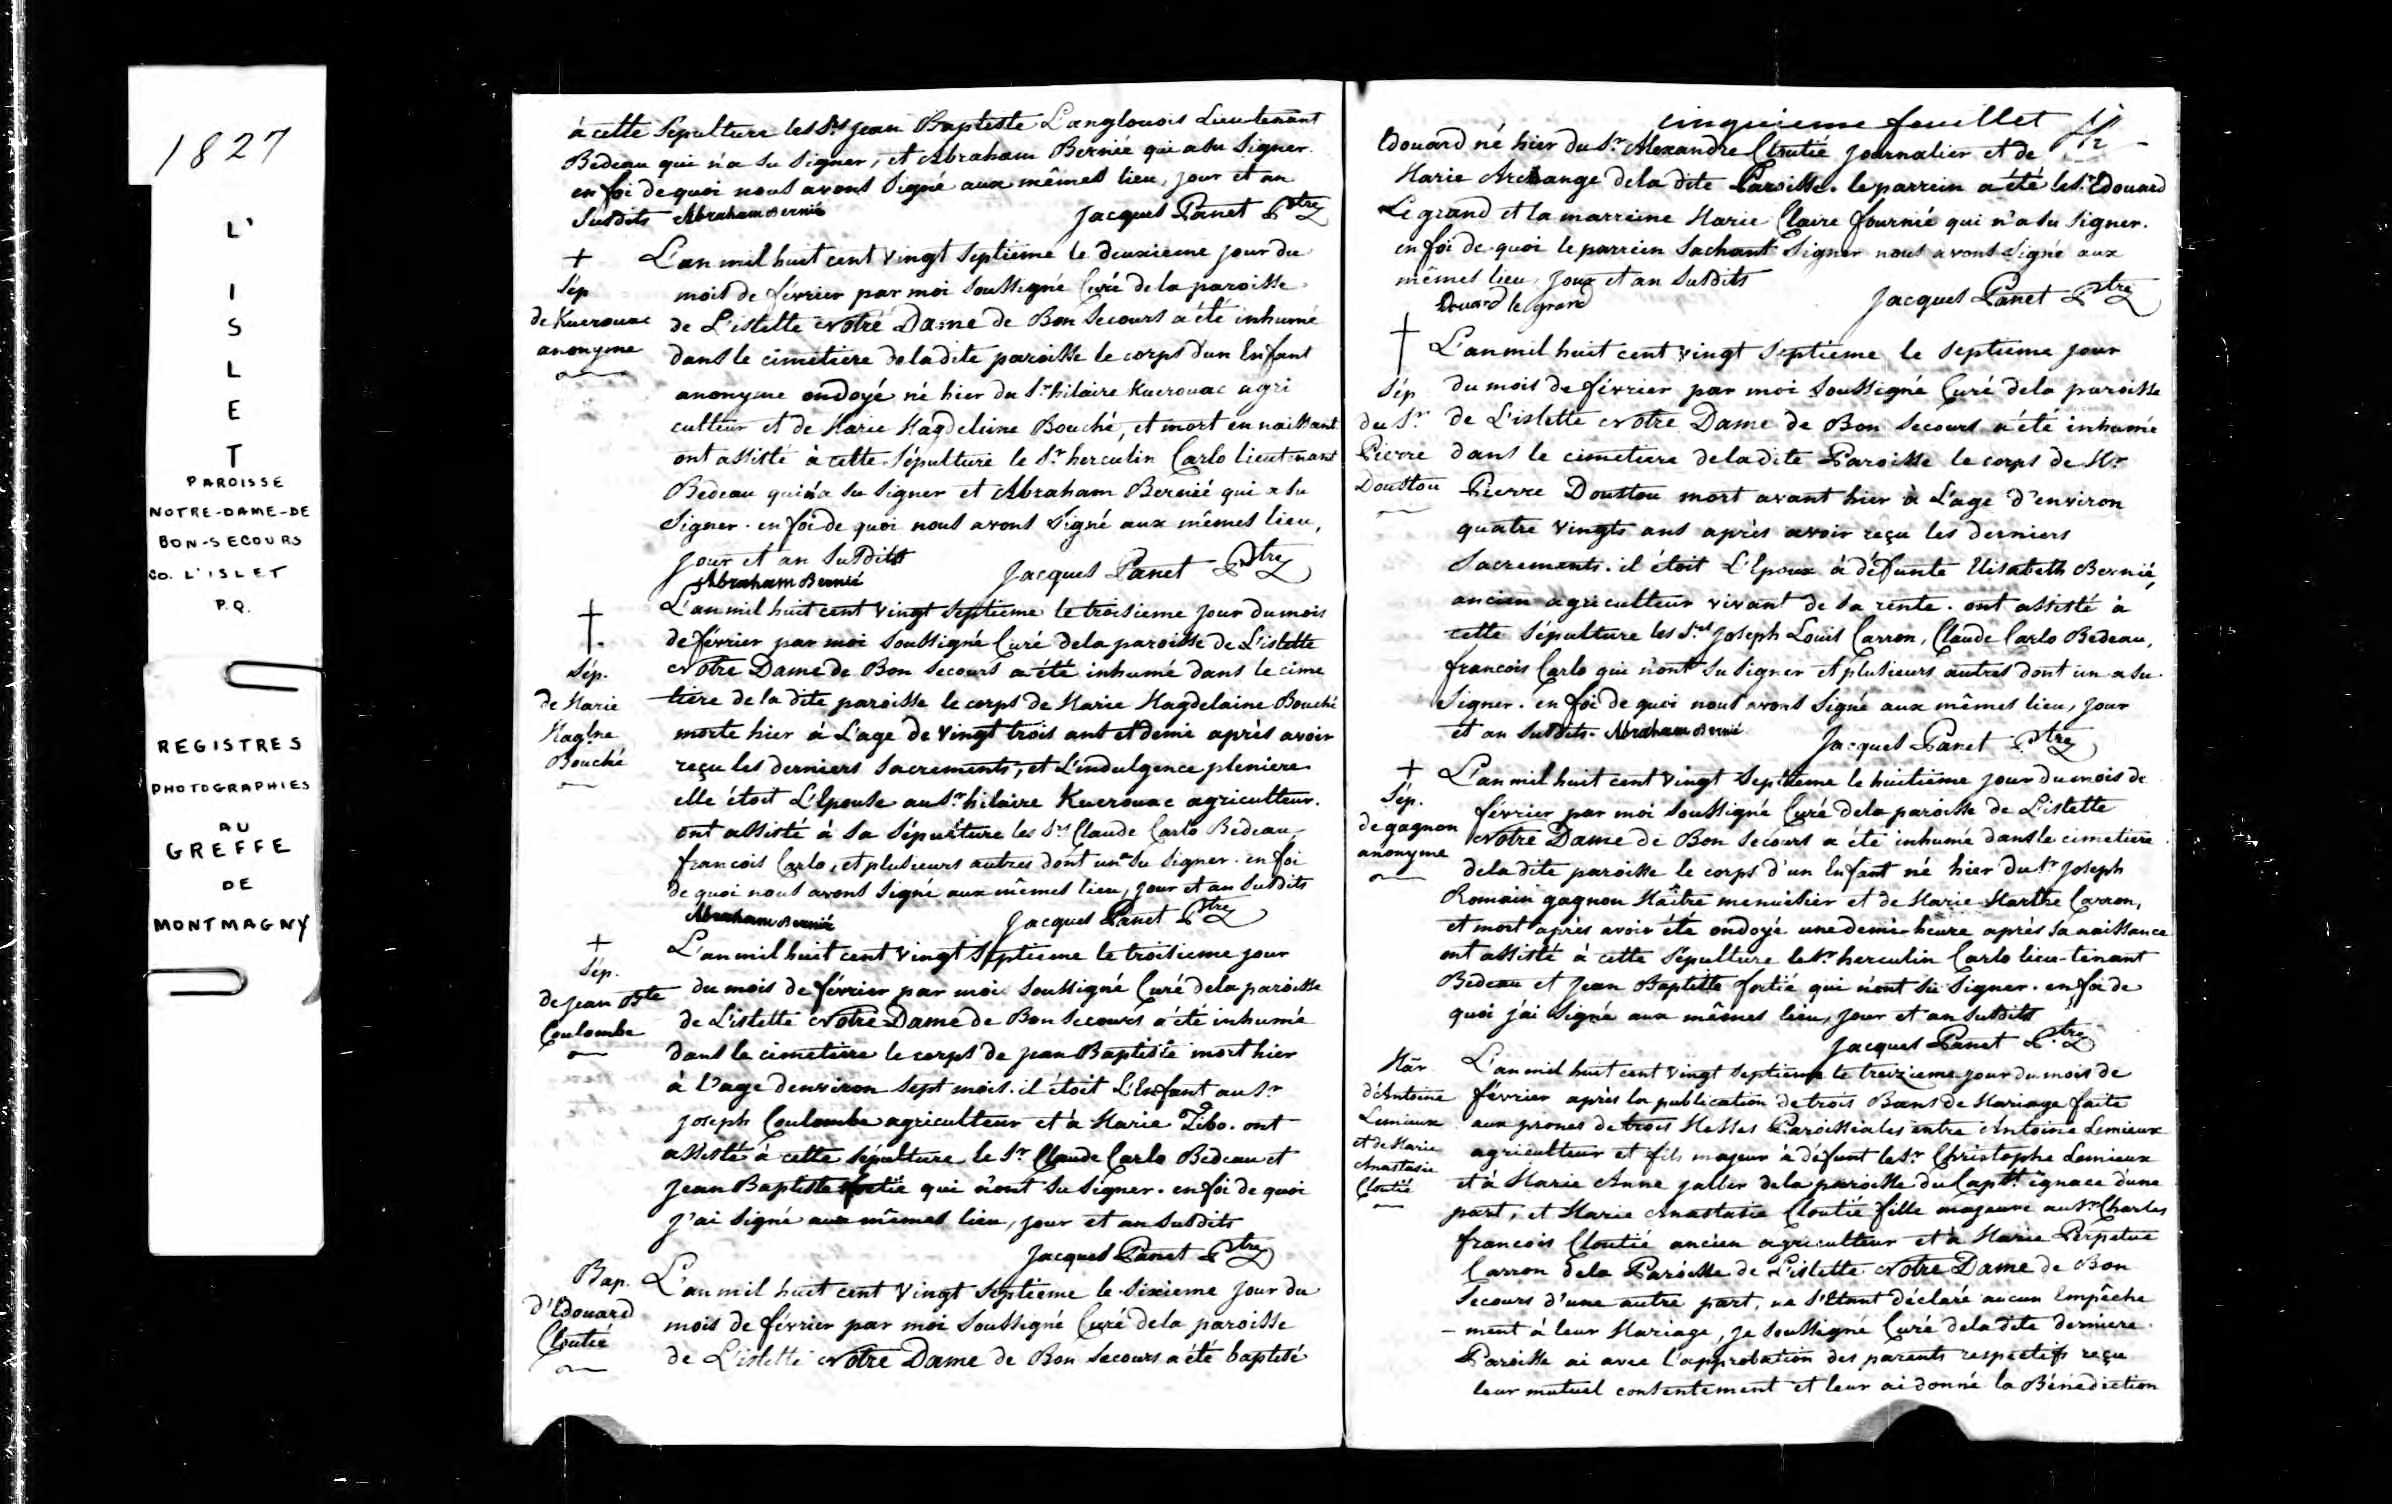 1827
L'
I
S
L
E
T
PAROISSE
NOTRE-DAME-DE
BON-SECOURS
CO. L'ISLET
P.Q.
REGISTRES
PHOTOGRAPHIES
AU
GREFFE
DE
MONTMAGNY
à cette Sépulture les Srs Jean Baptiste Langlouois Lieutenant
Bedeau qui n'a su signer, et Abraham Bernié qui a su signer.
en foi de quoi nous avons signé aux mêmes lieu, jour et an
susdits Abraham Bernié Jacques Panet Ptre
+
Sép
de Kuerouac
anonyme
L'an mil huit cent vingt septieme le deuxieme jour du
mois de février par moi soussigné Curé de la paroisse
de L'islette Notre Dame de Bon Secours a été inhumé
dans le cimetiere de la dite paroisse le corps d'un Enfant
anonyme ondoyé né hier du Sr hilaire Kuerouac agri
culteur et de Marie Magdeleine Bouché, et mort en naissant
ont assisté à cette Sépulture le Sr herculin Carlo lieutenant
Bedeau qui n'a su signer et Abraham Bernié qui a su
signer. en foi de quoi nous avons signé aux mêmes lieu,
jour et an susdits
Abraham Bernié Jacques Panet Ptre
+
Sép.
de Marie
Magne
Bouché
L'an mil huit cent vingt septieme le troisieme jour du mois
de février par moi soussigné Curé de la paroisse de L'islette
Notre Dame de Bon Secours a été inhumé dans le cime
tiere de la dite paroisse le corps de Marie Magdelaine Bouché
morte hier à L'age de vingt trois ans et demi après avoir
reçu les derniers sacrements, et L'indulgence pleniere
elle étoit L'Epouse au Sr hilaire Kuerouac agriculteur.
ont assisté à sa Sépulture les Srs Claude Carlo Bedeau,
francois Carlo, et plusieurs autres dont un a su signer. en foi
de quoi nous avons signé aux mêmes lieu, jour et an susdits
Abraham Bernié Jacques Panet Ptre
+
Sép.
de Jean Bte
Coulombe
L'an mil huit cent vingt septieme le troisieme jour
du mois de février par moi soussigné Curé de la paroisse
de L'islette Notre Dame de Bon Secours a été inhumé
dans le cimetiere le corps de Jean Baptiste mort hier
à l'age d'environ sept mois. il étoit L'Enfant au Sr
Joseph Coulombe agriculteur et à Marie Tibo. ont
assisté à cette sépulture le Sr Claude Carlo Bedeau et
Jean Baptiste fortié qui n'ont su signer. en foi de quoi
j'ai signé aux mêmes lieu, jour et an susdits
Jacques Panet Ptre
Bap.
d'Edouard
Cloutié
L'an mil huit cent vingt septieme le sixieme jour du
mois de février par moi soussigné Curé de la paroisse
de L'islette Notre Dame de Bon Secours a été baptisé
cinquieme feuillet
Edouard né hier du Sr Alexandre Cloutié journalier et de
Marie Archange de la dite Paroisse. le parrein a été le Sr Edouard
Legrand et la marreine Marie Claire fournié qui n'a su signer.
en foi de quoi le parrein sachant signer nous avons signé aux
mêmes lieu, jour et an susdits
Edouard legrand Jacques Panet Ptre
+
Sép
du Sr
Pierre
Doustou
L'an mil huit cent vingt septieme le septieme jour
du mois de février par moi soussigné Curé de la paroisse
de L'islette Notre Dame de Bon Secours a été inhumé
dans le cimetiere de la dite Paroisse le corps de Mr
Pierre Doustou mort avant hier à L'age d'environ
quatre vingts ans après avoir reçu les derniers
Sacrements. il étoit L'Epoux à défunte Elisabeth Bernié,
ancien agriculteur vivant de sa rente. ont assisté à
cette Sépulture les Srs Joseph Louis Carron, Claude Carlo Bedeau,
francois Carlo qui n'ont su signer et plusieurs autres dont un a su
signer. en foi de quoi nous avons signé aux mêmes lieu, jour
et an susdits. Abraham Bernié Jacques Panet Ptre
+
Sép.
de gagnon
anonyme
L'an mil huit cent vingt septieme le huitieme jour du mois de
février par moi soussigné Curé de la paroisse de L'islette
Notre Dame de Bon Secours a été inhumé dans le cimetiere
de la dite paroisse le corps d'un Enfant né hier du Sr Joseph
Romain gagnon Maître menuisier et de Marie Marthe Carron,
et mort après avoir été ondoyé une demi-heure après sa naissance
ont assisté à cette Sépulture le Sr herculin Carlo lieu-tenant
Bedeau et Jean Baptiste fortié qui n'ont su signer. en foi de
quoi j'ai signé aux mêmes lieu, jour et an susdits
Jacques Panet Ptre
Mar.
d'Antoine
Lemieux
et de Marie
Anastasie
Cloutié
L'an mil huit cent vingt septieme le treizieme jour du mois de
février après la publication de trois Bans de Mariage faite
aux prones de trois Messes Paroissiales entre Antoine Lemieux
agriculteur et fils majeur à défunt le Sr Christophe Lemieux
et à Marie Anne jalber de la paroisse du Capst. ignace d'une
part, et Marie Anastasie Cloutié fille majeure au Sr Charles
francois Cloutié ancien agriculteur et à Marie Perpetue
Carron de la Paroisse de L'islette Notre Dame de Bon
Secours d'une autre part, ne s'étant déclaré aucun Empêche
-ment à leur Mariage, je soussigné Curé de la dite derniere
Paroisse ai avec l'approbation des parents respectifs reçu
leur mutuel consentement et leur ai donné la Bénédiction